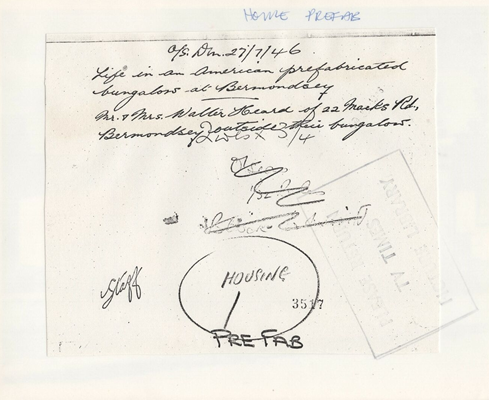 HOME PREFAB
O/S. Dm. 27/7/46.
Life in an American prefabricated
bungalow at Bermondsey
Mr. & Mrs. Walter Heard of 22 Macks Rd,
Bermondsey outside their bungalow.
3/4
Staff
HOUSING
3517
PREFAB
TV TIMES
LIBRARY